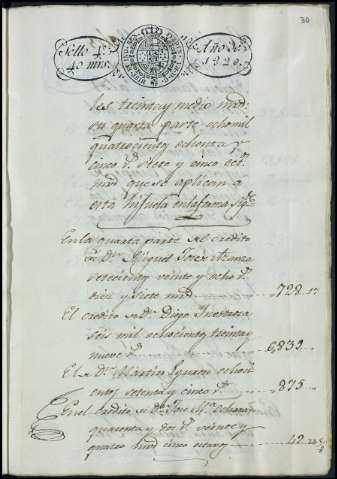 30
Sello 4º
40 mrs.
Año de
1820.
les treinta y medio mrd:
su quarta parte ocho mil
quatrocientos ochenta y
cinco rs. siete y cinco oct.
mrd que se aplican a
esta hijuela en la forma sigte.
En la quarta parte del credito
de Dn. Miguel
setecientos veinte y ocho rs.
diez y siete mrd 728 17
El credito de Dn. Diego
seis mil ochocientos treinta y
nueve rs. 6,839
El de Dn. Martin Ignacio ochocien
tos setenta y cinco rs. 875
En el credito de Dn. Jose Ma.
quarenta y dos rs. veinte y
quatro mrd cinco 42 24